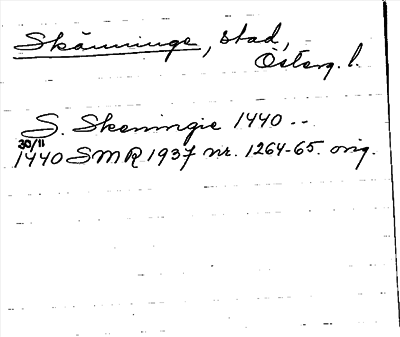 Skänninge, stad,
Österg. l.
S. Skeningie 1440 --
30/11
1440 SMR 1937 nr. 1264-65. orig.